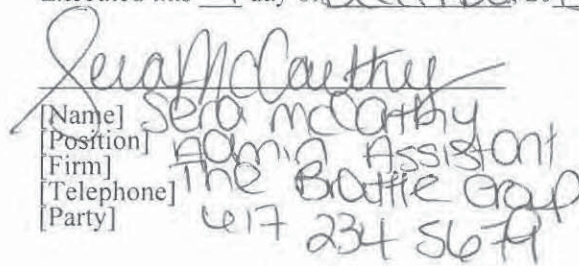 Sera McCarthy
[Name] Sera McCarthy
[Position] Admin Assistant
[Firm] The Brattle Group
[Telephone] 617 234 5679
[Party]